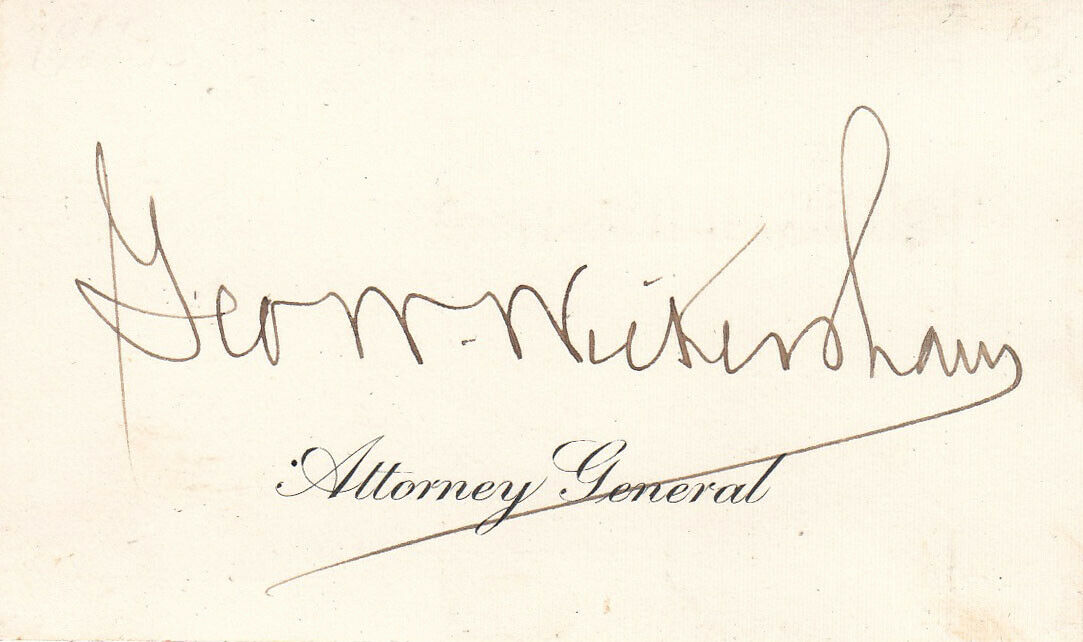 Geo W. Wickersham
Attorney General